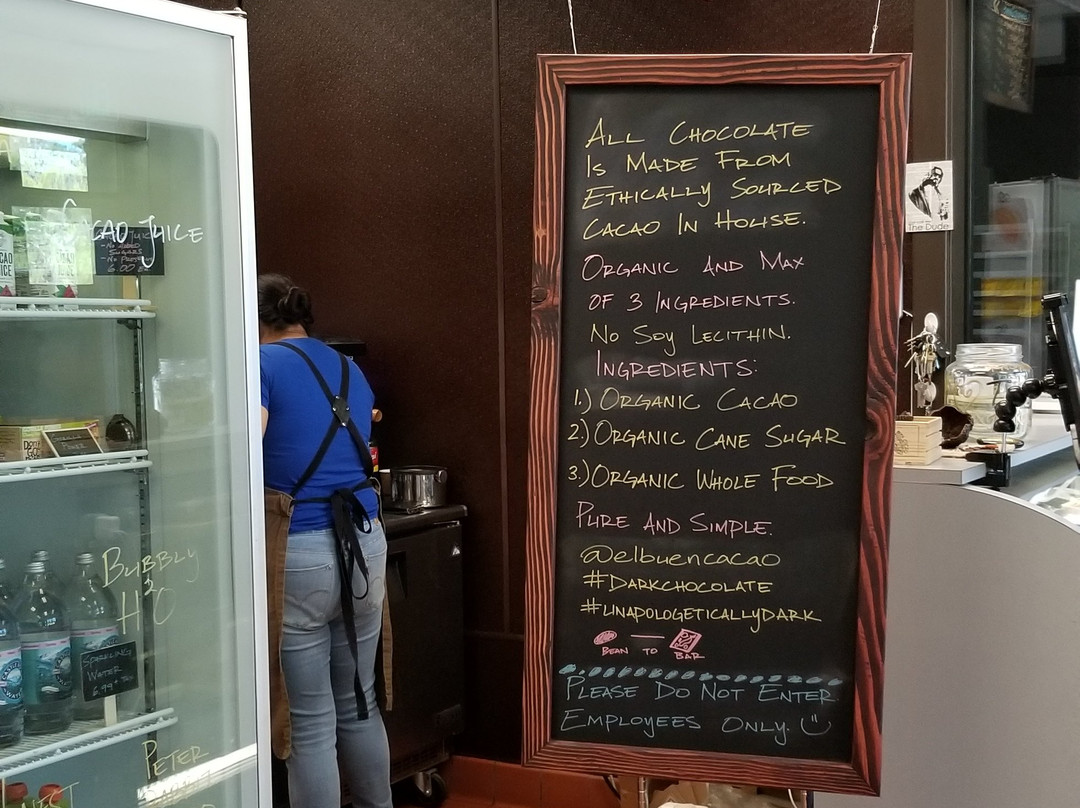 CACAO JUICE
6.00
BUBBLY
H2O
SPARKLING
WATER
6.99
PETER
ALL CHOCOLATE
IS MADE FROM
ETHICALLY SOURCED
CACAO IN HOUSE.
ORGANIC AND MAX
OF 3 INGREDIENTS.
NO SOY LECITHIN.
INGREDIENTS:
1.) ORGANIC CACAO
2.) ORGANIC CANE SUGAR
3.) ORGANIC WHOLE FOOD
PURE AND SIMPLE.
@elbuencacao
#DARKCHOCOLATE
#UNAPOLOGETICALLYDARK
BEAN TO BAR
PLEASE DO NOT ENTER
EMPLOYEES ONLY.
The Dude